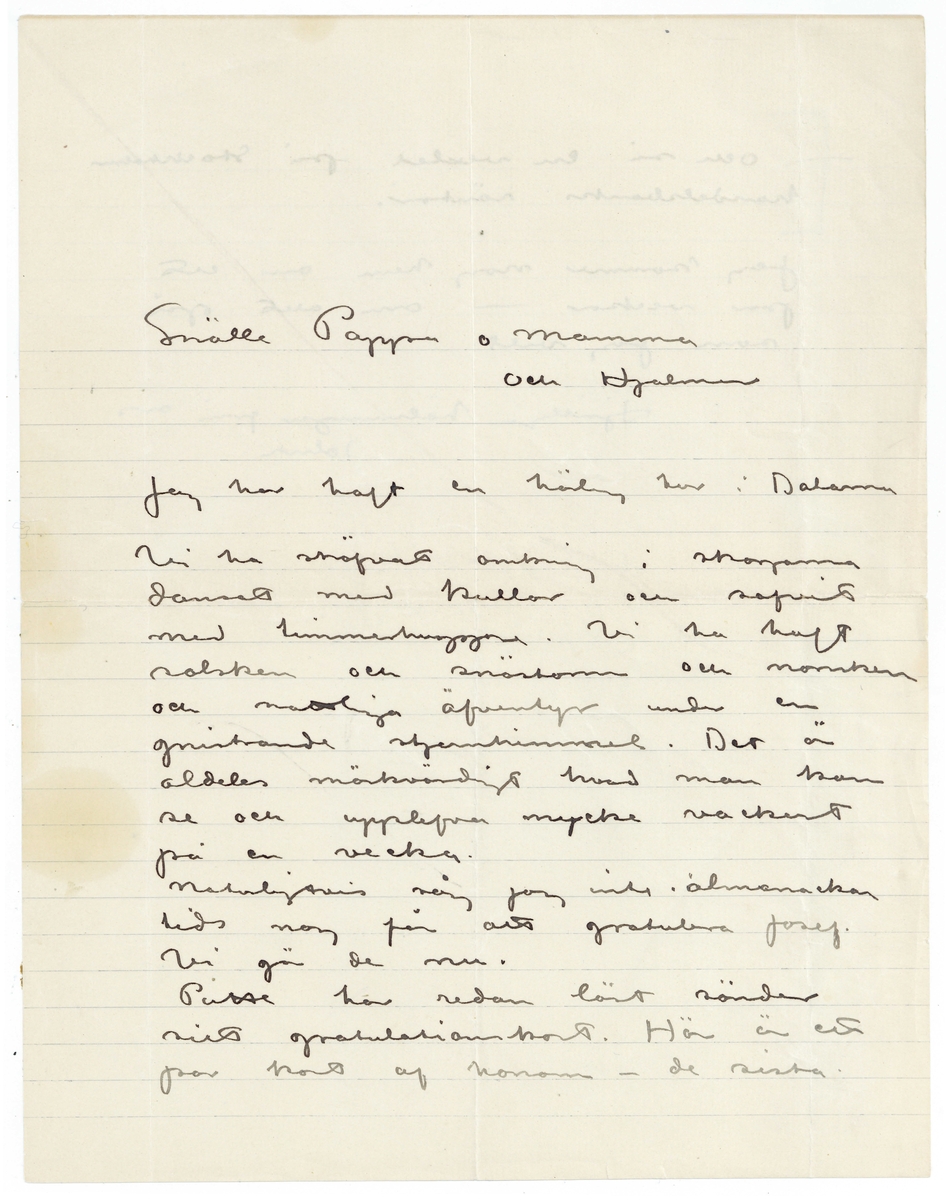 Snälle Pappa o Mamma
och Hjalmar
Jag har haft en härlig här i Dalarna
Vi ha ströfvat omkring i skogarna
dansat med kullor och sofvit
med timmerhuggare. Vi ha haft
solsken och snöstorm och norrsken
och nattliga äfventyr under en
gnistrande stjernhimmel. Det är
aldeles märkvärdigt hvad man kan
se och upplefva mycke vackert
på en vecka.
Naturligtvis såg jag inte i almanackan
tids nog för att gratulera Josef.
Vi gör de nu.
har redan läst sönder
sitt gratulationskort. Här är ett
par kort af honom – de sista.